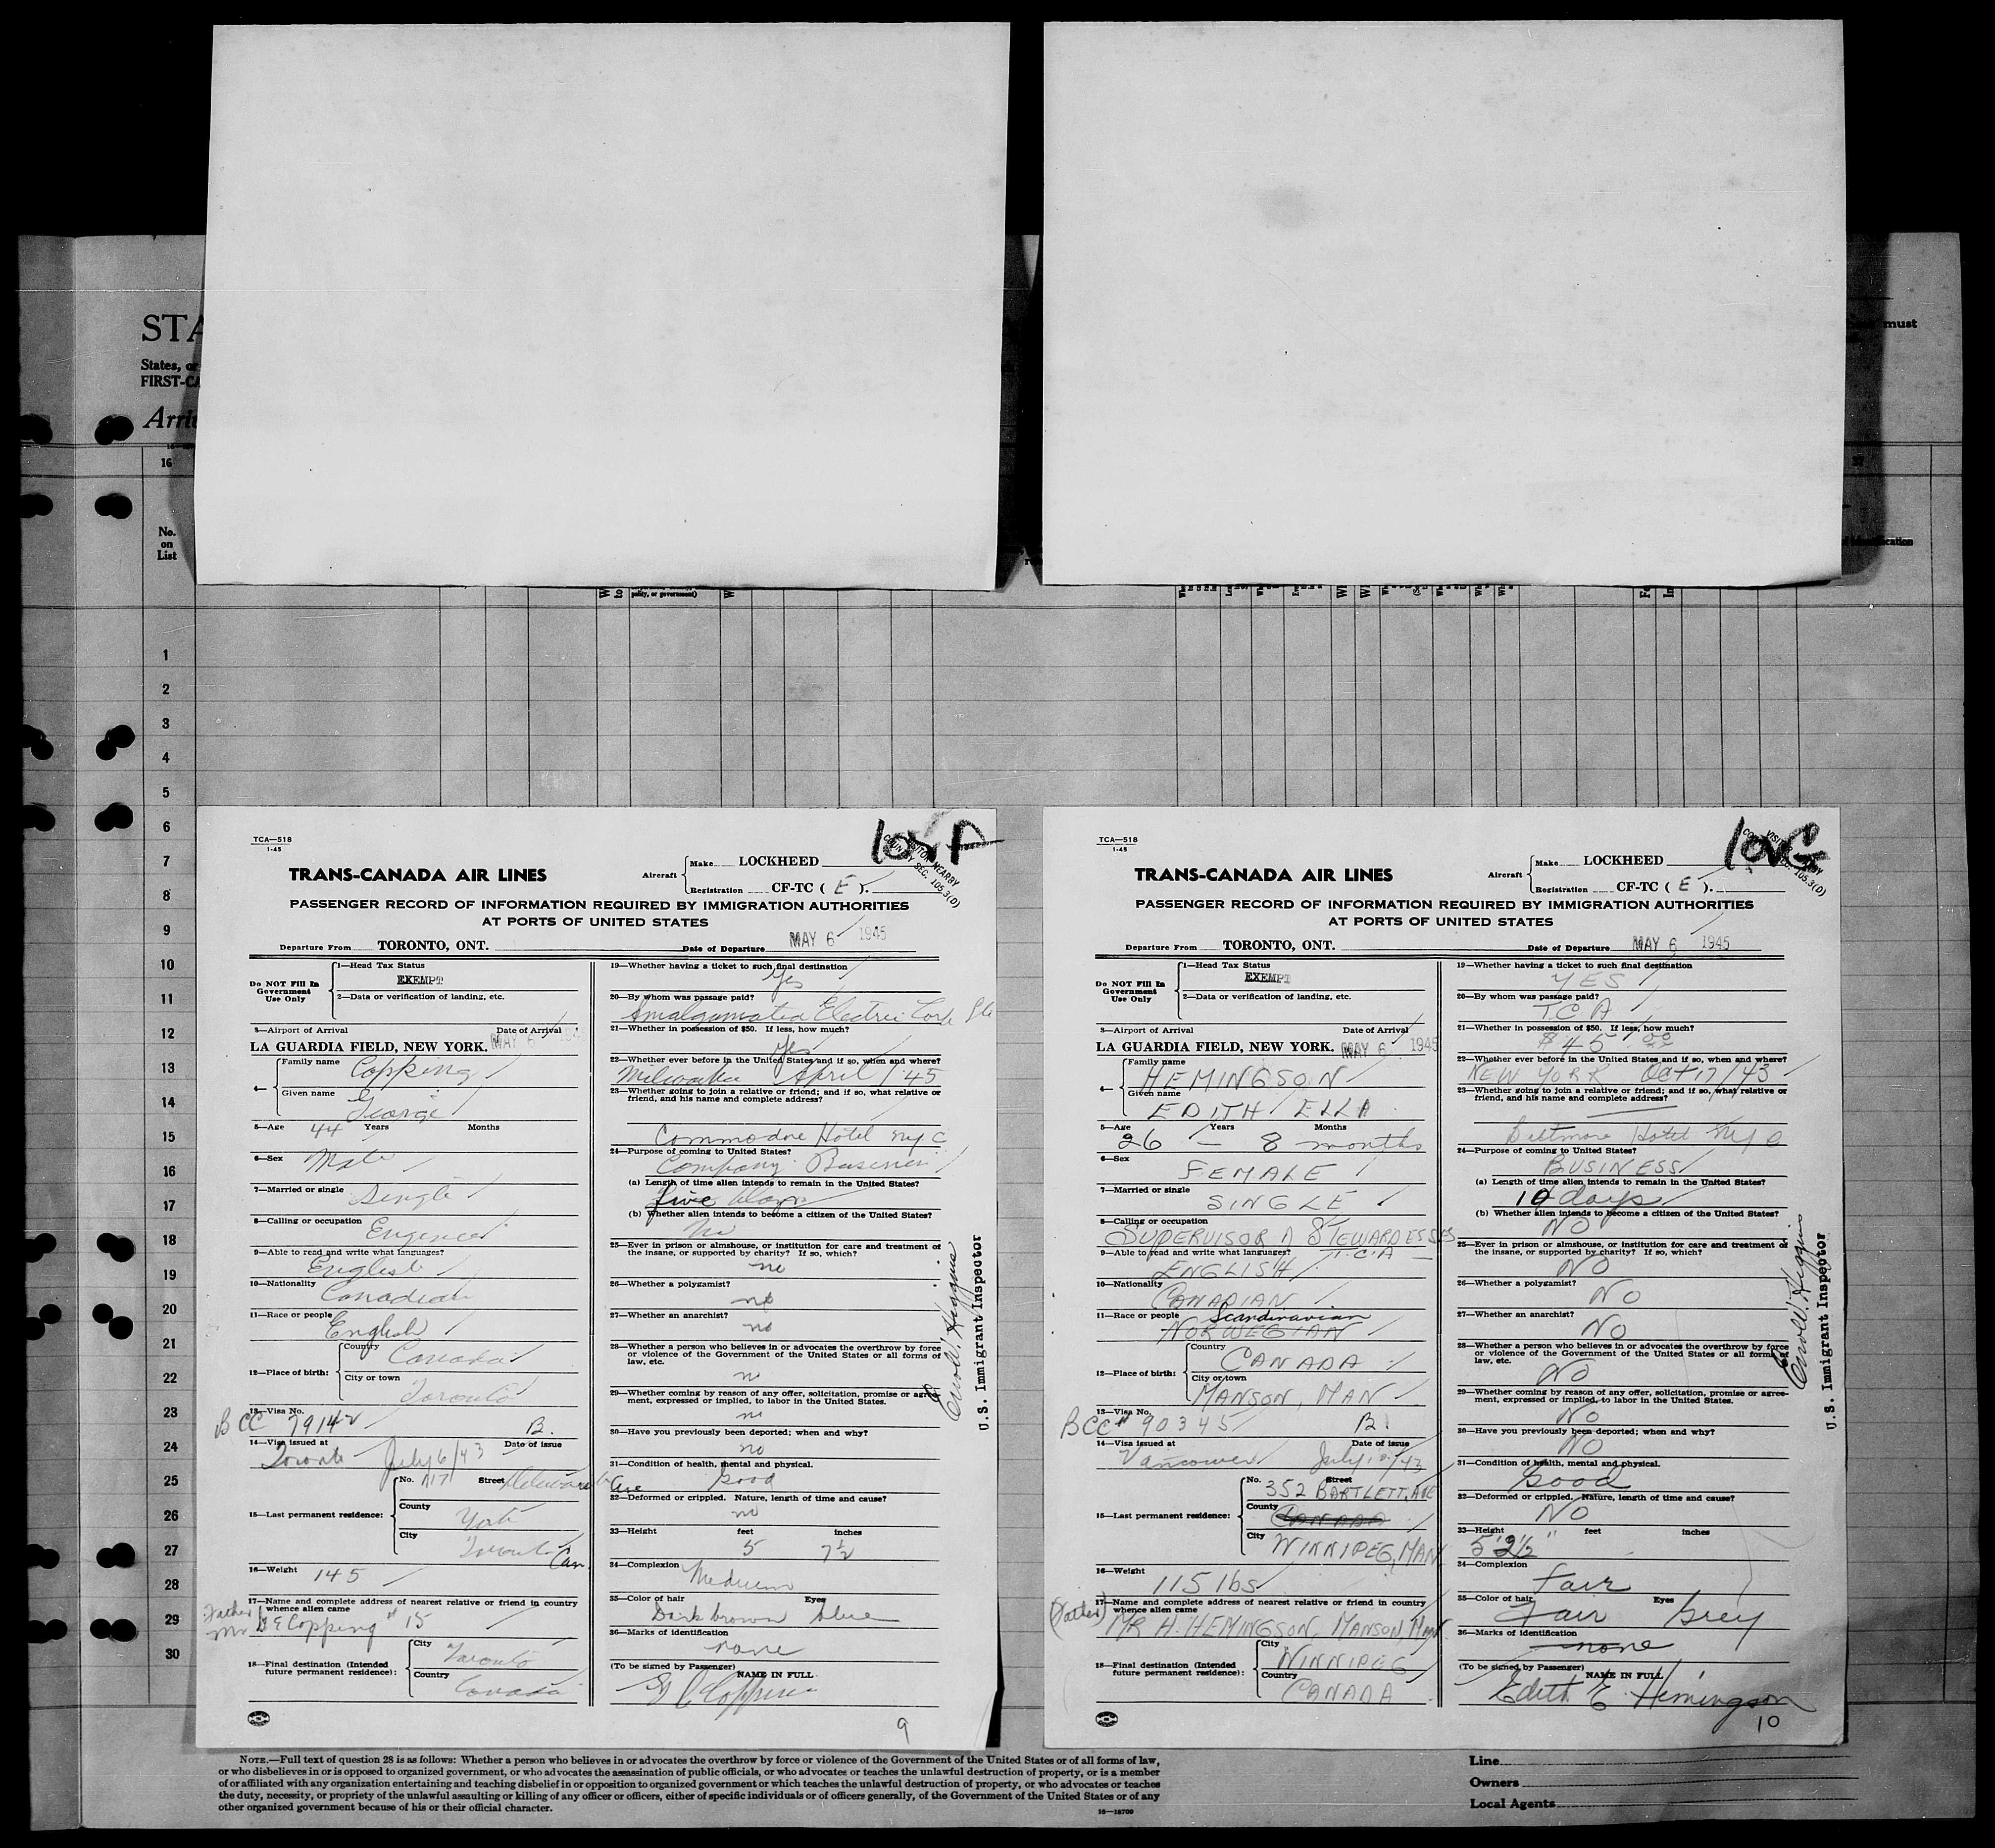 STA
must
States, or
FIRST-CA
Arri
16
No.
on
List
polity, or government)
1
2
3
4
5
6
7
8
9
10
11
12
13
14
15
16
17
18
19
20
21
22
23
24
25
26
27
28
29
30
TCA—518
1-45
TRANS-CANADA AIR LINES
Aircraft
Make LOCKHEED
Registration CF-TC ( E ).
PASSENGER RECORD OF INFORMATION REQUIRED BY IMMIGRATION AUTHORITIES
AT PORTS OF UNITED STATES
Departure From TORONTO, ONT. Date of Departure MAY 6 1945
Do NOT Fill In
Government
Use Only
1—Head Tax Status
EXEMPT
2—Data or verification of landing, etc.
3—Airport of Arrival Date of Arrival
LA GUARDIA FIELD, NEW YORK. MAY 6
4—
Family name Copping
Given name George
5—Age 44 Years Months
6—Sex Male
7—Married or single Single
8—Calling or occupation Engineer
9—Able to read and write what languages?
English
10—Nationality Canadian
11—Race or people English
12—Place of birth:
Country Canada
City or town Toronto
13—Visa No.
BCC 79142 B.
14—Visa issued at Date of issue
Toronto July 6/43
15—Last permanent residence:
No. 117 Street Delaware Ave
County York
City Toronto Can.
16—Weight 145
17—Name and complete address of nearest relative or friend in country
whence alien came
Father
Mr G E Copping " 15
18—Final destination (Intended
future permanent residence):
City Toronto
Country Canada
19—Whether having a ticket to such final destination
Yes
20—By whom was passage paid?
Amalgamated Electric Corp Ltd
21—Whether in possession of $50. If less, how much?
Yes
22—Whether ever before in the United States and if so, when and where?
Milwaukee April / 45
23—Whether going to join a relative or friend; and if so, what relative or
friend, and his name and complete address?
Commodore Hotel NYC
24—Purpose of coming to United States?
Company Business
(a) Length of time alien intends to remain in the United States?
five days
(b) Whether alien intends to become a citizen of the United States?
No
25—Ever in prison or almshouse, or institution for care and treatment of
the insane, or supported by charity? If so, which?
no
26—Whether a polygamist?
no
27—Whether an anarchist?
no
28—Whether a person who believes in or advocates the overthrow by force
or violence of the Government of the United States or all forms of
law, etc.
no
29—Whether coming by reason of any offer, solicitation, promise or agree-
ment, expressed or implied, to labor in the United States.
no
30—Have you previously been deported; when and why?
no
31—Condition of health, mental and physical.
Good
32—Deformed or crippled. Nature, length of time and cause?
no
33—Height feet inches
5 7½
34—Complexion
Medium
35—Color of hair Eyes
Dark brown blue
36—Marks of identification
none
(To be signed by Passenger) NAME IN FULL
G E Copping
9
U.S. Immigrant Inspector
TCA—518
1-45
TRANS-CANADA AIR LINES
Aircraft
Make LOCKHEED
Registration CF-TC ( E ).
PASSENGER RECORD OF INFORMATION REQUIRED BY IMMIGRATION AUTHORITIES
AT PORTS OF UNITED STATES
Departure From TORONTO, ONT. Date of Departure MAY 6 1945
Do NOT Fill In
Government
Use Only
1—Head Tax Status
EXEMPT
2—Data or verification of landing, etc.
3—Airport of Arrival Date of Arrival
LA GUARDIA FIELD, NEW YORK. MAY 6 1945
4—
Family name HEMINGSON
Given name
EDITH ELLA
5—Age Years Months
26 — 8 months
6—Sex FEMALE
7—Married or single SINGLE
8—Calling or occupation
SUPERVISOR STEWARDESSES
T.C.A
9—Able to read and write what languages?
ENGLISH
10—Nationality CANADIAN
11—Race or people Scandinavian
NORWEGIAN
12—Place of birth:
Country CANADA
City or town MANSON, MAN
13—Visa No.
BCC # 90345 B.
14—Visa issued at Date of issue
Vancouver July /43
15—Last permanent residence:
No. Street
352 BARTLETT, AVE
County CANADA
City WINNIPEG, MAN
16—Weight 115 lbs
17—Name and complete address of nearest relative or friend in country
whence alien came
(Father) MR H. HEMINGSON, MANSON, MAN
18—Final destination (Intended
future permanent residence):
City WINNIPEG
Country CANADA
19—Whether having a ticket to such final destination
YES
20—By whom was passage paid?
T.C.A
21—Whether in possession of $50. If less, how much?
$45.00
22—Whether ever before in the United States and if so, when and where?
NEW YORK Oct 17/43
23—Whether going to join a relative or friend; and if so, what relative or
friend, and his name and complete address?
Biltmore Hotel NYC
24—Purpose of coming to United States?
BUSINESS
(a) Length of time alien intends to remain in the United States?
10 days
(b) Whether alien intends to become a citizen of the United States?
NO
25—Ever in prison or almshouse, or institution for care and treatment of
the insane, or supported by charity? If so, which?
NO
26—Whether a polygamist?
NO
27—Whether an anarchist?
NO
28—Whether a person who believes in or advocates the overthrow by force
or violence of the Government of the United States or all forms of
law, etc.
NO
29—Whether coming by reason of any offer, solicitation, promise or agree-
ment, expressed or implied, to labor in the United States.
NO
30—Have you previously been deported; when and why?
NO
31—Condition of health, mental and physical.
Good
32—Deformed or crippled. Nature, length of time and cause?
NO
33—Height feet inches
5' 2½"
34—Complexion
Fair
35—Color of hair Eyes
Fair Grey
36—Marks of identification
none
(To be signed by Passenger) NAME IN FULL
Edith E Hemingson
10
U.S. Immigrant Inspector
NOTE.—Full text of question 28 is as follows: Whether a person who believes in or advocates the overthrow by force or violence of the Government of the United States or of all forms of law,
or who disbelieves in or is opposed to organized government, or who advocates the assassination of public officials, or who advocates or teaches the unlawful destruction of property, or is a member
of or affiliated with any organization entertaining and teaching disbelief in or opposition to organized government or which teaches the unlawful destruction of property, or who advocates or teaches
the duty, necessity, or propriety of the unlawful assaulting or killing of any officer or officers, either of specific individuals or of officers generally, of the Government of the United States or of any
other organized government because of his or their official character.
16—18709
Line
Owners
Local Agents